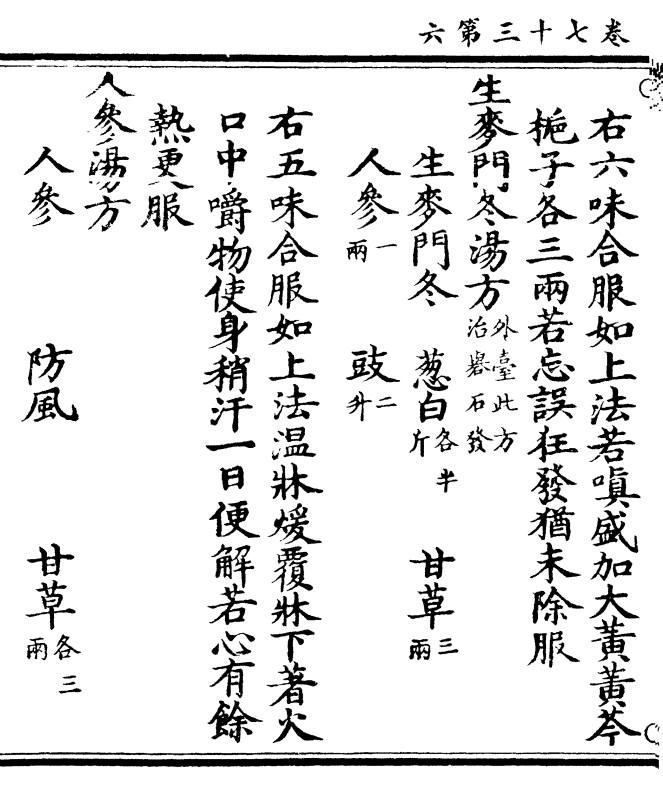 卷七十三第六
右六味合服如上法若嗔盛加大黃黃芩
梔子各三兩若忘誤狂發猶未除服
生麥門冬湯方外臺此方治礜石發
生麥門冬 葱白各半斤 甘草三兩
人參一兩 豉二升
右五味合服如上法温牀煖覆牀下著火
口中嚼物使身稍汗一日便解若心有餘
熱更服
人參湯方
人參 防風 甘草各三兩